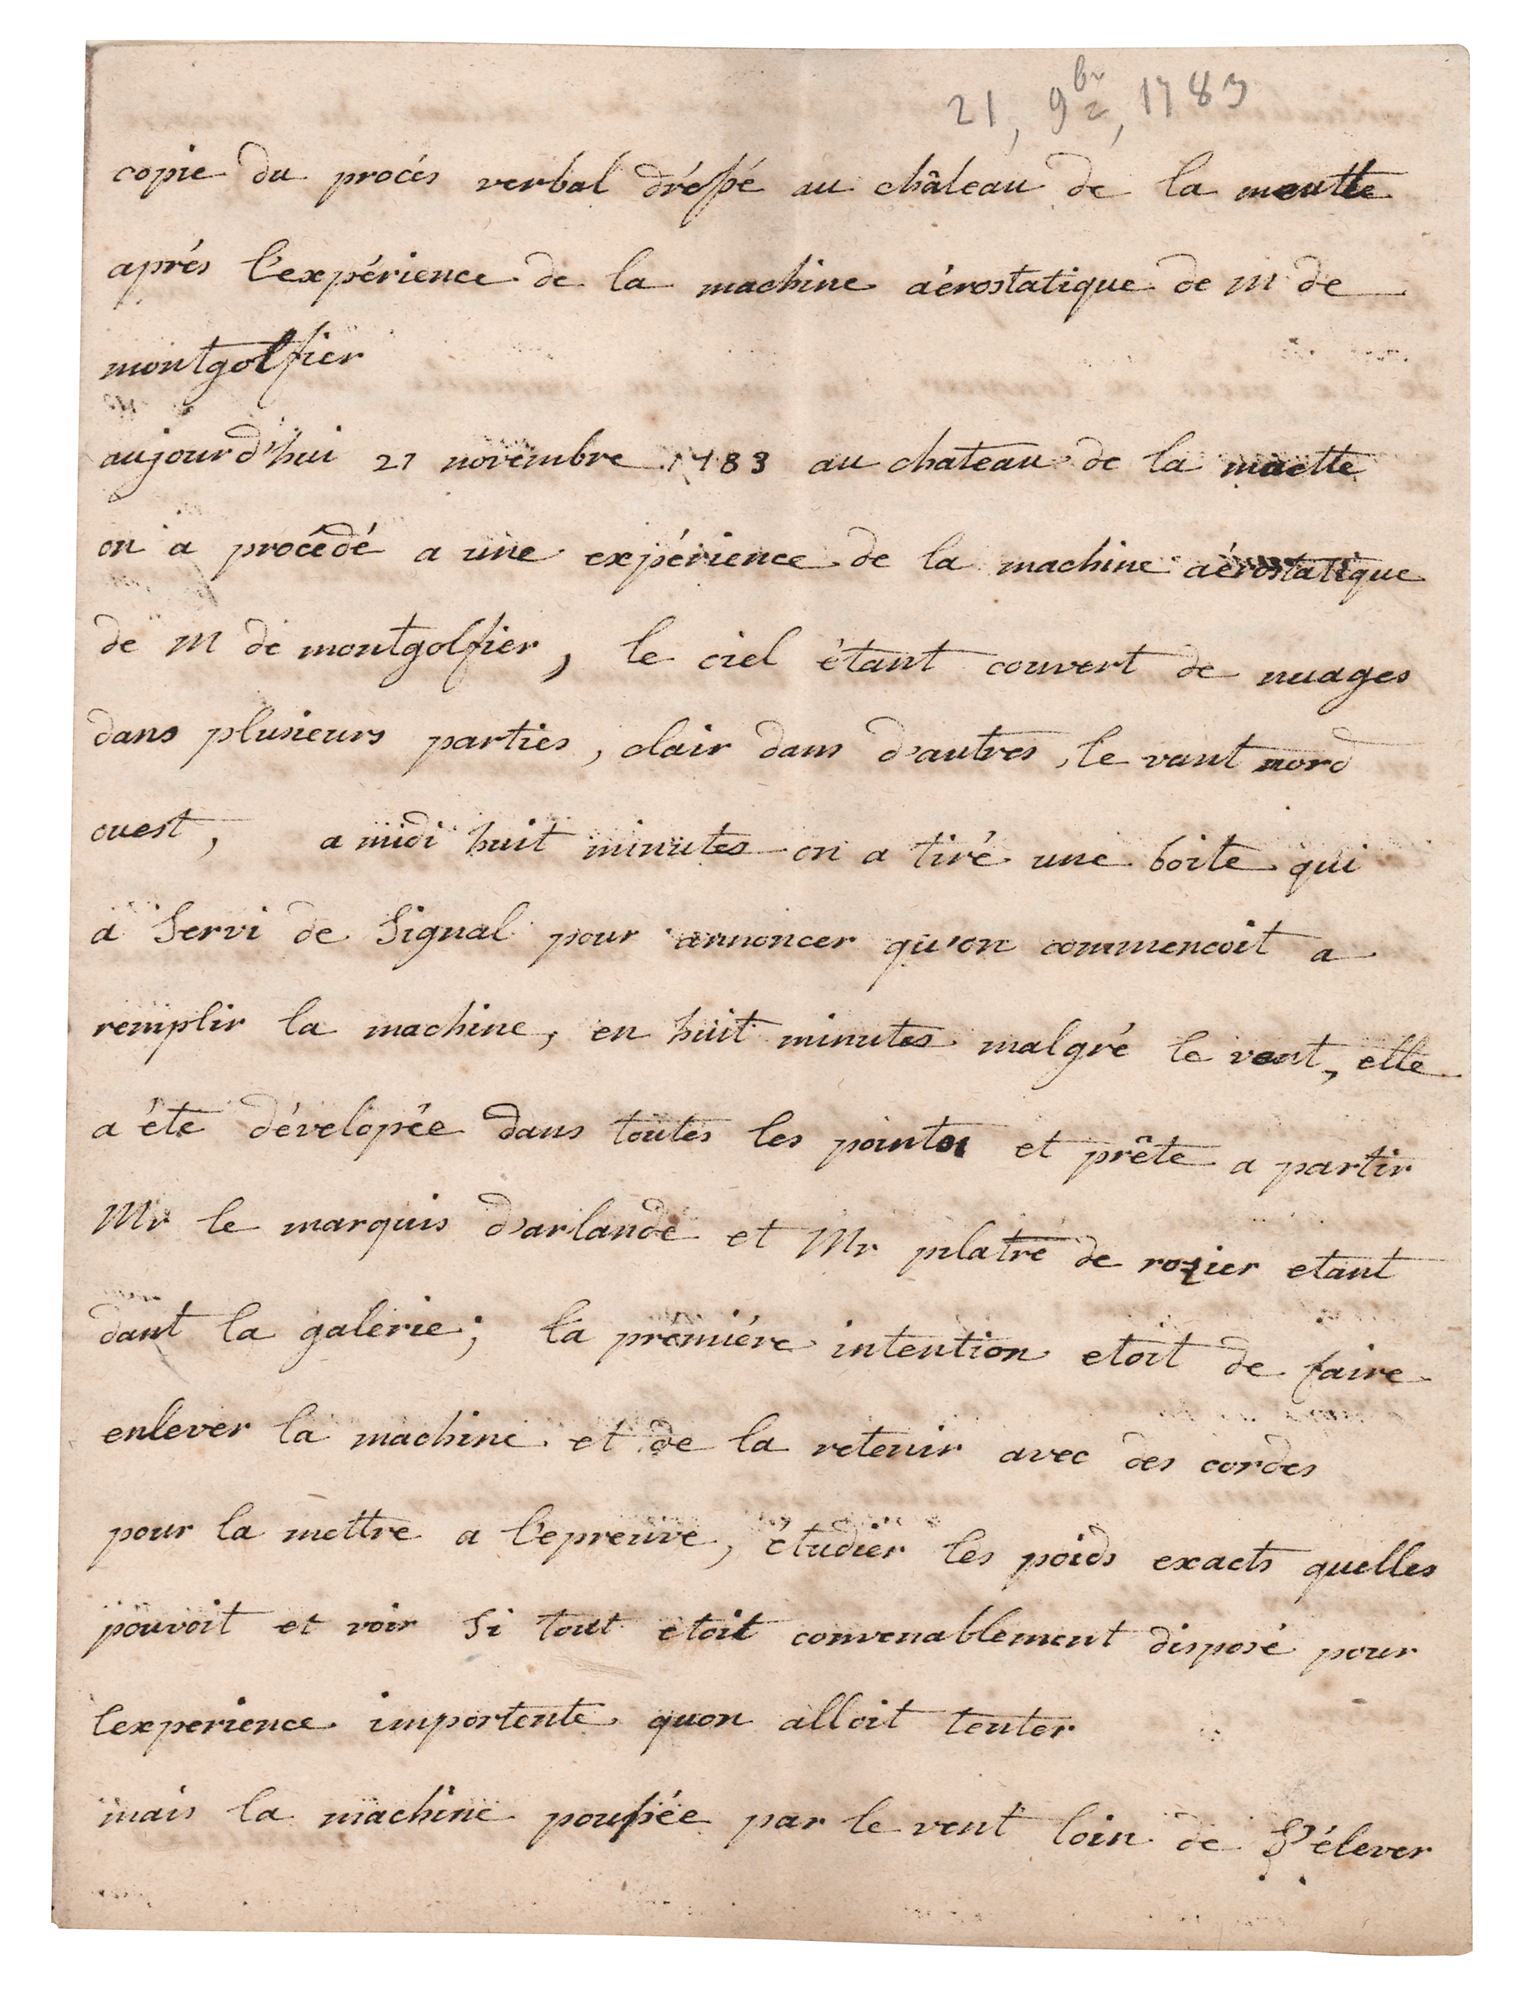 21, 9bre, 1783
copie du procés verbal dréssé au château de la meutte
aprés l'expérience de la machine aérostatique de m de
montgolfier
aujourd'hui 21 novembre 1783 au chateau de la muette
on a procédé a une expérience de la machine aérostatique
de m de montgolfier, le ciel étant couvert de nuages
dans plusieurs parties, clair dans d'autres, le vant nord
ouest, a midi huit minutes on a tiré une boite qui
a servi de signal pour annoncer qu'on commencoit a
remplir la machine, en huit minutes malgré le vent, elle
a été dévelopée dans toutes les points et prête a partir
Mr le marquis d'arlande et Mr pilatre de rozier etant
dant la galerie; la prémiére intention etoit de faire
enlever la machine et de la retenir avec des cordes
pour la mettre a l'epreuve, étudier les poids exacts quelles
pouvoit et voir si tout etoit convenablement disposé pour
lexperience importente quon alloit tenter
mais la machine poussée par le vent loin de s'élever